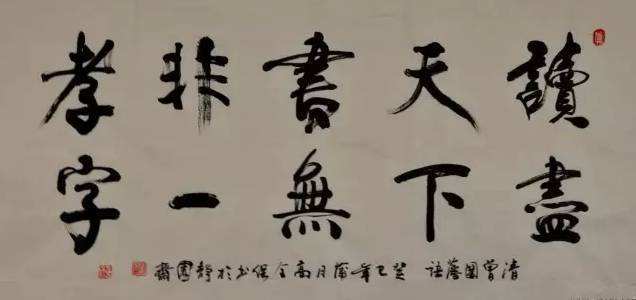 讀盡
天下
書無
非一
孝字
清曾國藩語 癸巳年蒲月高全保书於靜齋